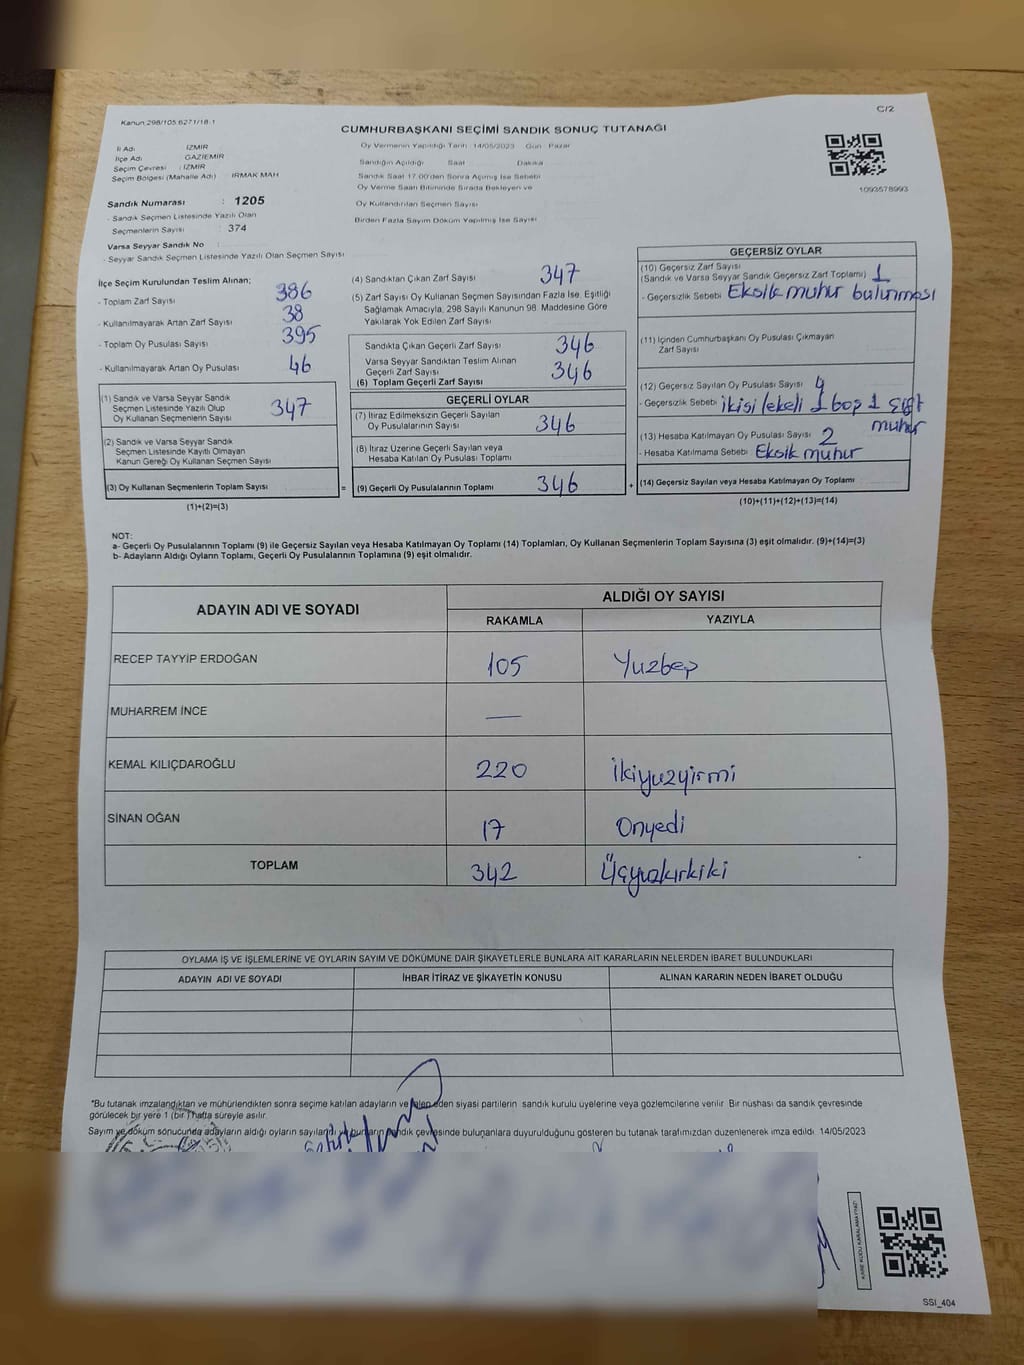 Kanun 298/105 6271/18 1
C/2
CUMHURBAŞKANI SEÇİMİ SANDIK SONUÇ TUTANAĞI
İl Adı : İZMİR
İlçe Adı : GAZİEMİR
Seçim Çevresi : İZMİR
Seçim Bölgesi (Mahalle Adı) : IRMAK MAH
Sandık Numarası : 1205
- Sandık Seçmen Listesinde Yazılı Olan
Seçmenlerin Sayısı : 374
Varsa Seyyar Sandık No
- Seyyar Sandık Seçmen Listesinde Yazılı Olan Seçmen Sayısı
Oy Vermenin Yapıldığı Tarih 14/05/2023 Gün Pazar
Sandığın Açıldığı Saat Dakika
Sandık Saat 17.00'den Sonra Açılmış İse Sebebi
Oy Verme Saati Bitiminde Sırada Bekleyen ve
Oy Kullandırılan Seçmen Sayısı
Birden Fazla Sayım Döküm Yapılmış İse Sayısı
1093578993
İlçe Seçim Kurulundan Teslim Alınan;
- Toplam Zarf Sayısı 386
- Kullanılmayarak Artan Zarf Sayısı 38
- Toplam Oy Pusulası Sayısı 395
- Kullanılmayarak Artan Oy Pusulası 46
(1) Sandık ve Varsa Seyyar Sandık
Seçmen Listesinde Yazılı Olup
Oy Kullanan Seçmenlerin Sayısı 347
(2) Sandık ve Varsa Seyyar Sandık
Seçmen Listesinde Kayıtlı Olmayan
Kanun Gereği Oy Kullanan Seçmen Sayısı
(3) Oy Kullanan Seçmenlerin Toplam Sayısı =
(1)+(2)=(3)
(4) Sandıktan Çıkan Zarf Sayısı 347
(5) Zarf Sayısı Oy Kullanan Seçmen Sayısından Fazla İse, Eşitliği
Sağlamak Amacıyla, 298 Sayılı Kanunun 98. Maddesine Göre
Yakılarak Yok Edilen Zarf Sayısı
Sandıkta Çıkan Geçerli Zarf Sayısı 346
Varsa Seyyar Sandıktan Teslim Alınan
Geçerli Zarf Sayısı 346
(6) Toplam Geçerli Zarf Sayısı
GEÇERLİ OYLAR
(7) İtiraz Edilmeksizin Geçerli Sayılan
Oy Pusulalarının Sayısı 346
(8) İtiraz Üzerine Geçerli Sayılan veya
Hesaba Katılan Oy Pusulası Toplamı
(9) Geçerli Oy Pusulalarının Toplamı 346 +
GEÇERSİZ OYLAR
(10) Geçersiz Zarf Sayısı
(Sandık ve Varsa Seyyar Sandık Geçersiz Zarf Toplamı) 1
- Geçersizlik Sebebi Eksik muhur bulunması
(11) İçinden Cumhurbaşkanı Oy Pusulası Çıkmayan
Zarf Sayısı
(12) Geçersiz Sayılan Oy Pusulası Sayısı 4
- Geçersizlik Sebebi ikisi lekeli 1 boş 1 çift
muhur
(13) Hesaba Katılmayan Oy Pusulası Sayısı 2
- Hesaba Katılmama Sebebi Eksik muhur
(14) Geçersiz Sayılan veya Hesaba Katılmayan Oy Toplamı
(10)+(11)+(12)+(13)=(14)
NOT:
a- Geçerli Oy Pusulalarının Toplamı (9) ile Geçersiz Sayılan veya Hesaba Katılmayan Oy Toplamı (14) Toplamları, Oy Kullanan Seçmenlerin Toplam Sayısına (3) eşit olmalıdır. (9)+(14)=(3)
b- Adayların Aldığı Oyların Toplamı, Geçerli Oy Pusulalarının Toplamına (9) eşit olmalıdır.
ADAYIN ADI VE SOYADI
ALDIĞI OY SAYISI
RAKAMLA YAZIYLA
RECEP TAYYİP ERDOĞAN 105 Yuzbeş
MUHARREM İNCE —
KEMAL KILIÇDAROĞLU 220 İkiyuzyirmi
SİNAN OĞAN 17 Onyedi
TOPLAM 342 Üçyuzkırkiki
OYLAMA İŞ VE İŞLEMLERİNE VE OYLARIN SAYIM VE DÖKÜMÜNE DAİR ŞİKAYETLERLE BUNLARA AİT KARARLARIN NELERDEN İBARET BULUNDUKLARI
ADAYIN ADI VE SOYADI İHBAR İTİRAZ VE ŞİKAYETİN KONUSU ALINAN KARARIN NEDEN İBARET OLDUĞU
*Bu tutanak imzalandıktan ve mühürlendikten sonra seçime katılan adayların ve talep eden siyasi partilerin sandık kurulu üyelerine veya gözlemcilerine verilir Bir nüshası da sandık çevresinde
görülecek bir yere 1 (bir) hafta süreyle asılır.
Sayım ve döküm sonucunda adayların aldığı oyların sayıları ve bunların sandık çevresinde bulunanlara duyurulduğunu gösteren bu tutanak tarafımızdan düzenlenerek imza edildi 14/05/2023
KARE KODU KARALAMAYINIZ!
SSI_404